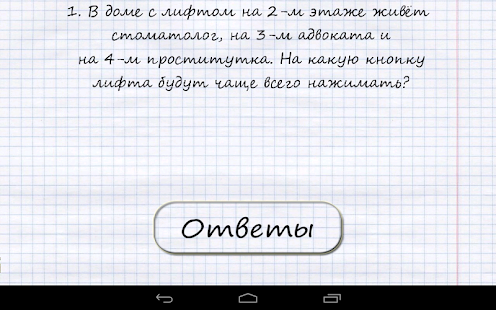 1. В доме с лифтом на 2-м этаже живёт
стоматолог, на 3-м адвоката и
на 4-м проститутка. На какую кнопку
лифта будут чаще всего нажимать?
Ответы